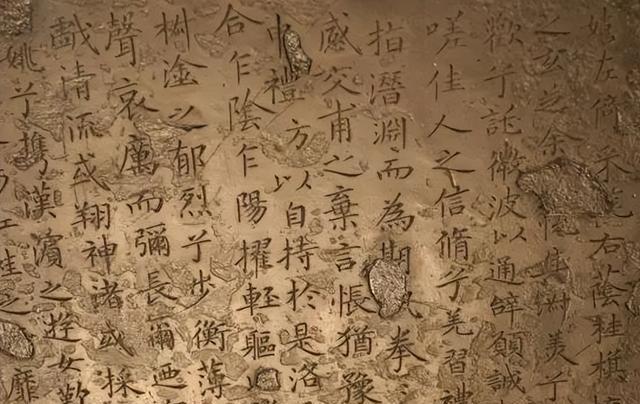 嬉左倚采旄右蔭桂旗
之玄芝余悅其淑美兮
歡兮託微波以通辭願誠
嗟佳人之信脩兮羌習禮
指潛淵而為期拳
感交甫之棄言悵猶豫
中禮方以自持於是洛
合乍陰乍陽擢輕軀
椒塗之郁烈兮步衡薄
聲哀厲而彌長爾迺
戲清流或翔神渚或採
姚兮携漢濱之遊女歎
之靡